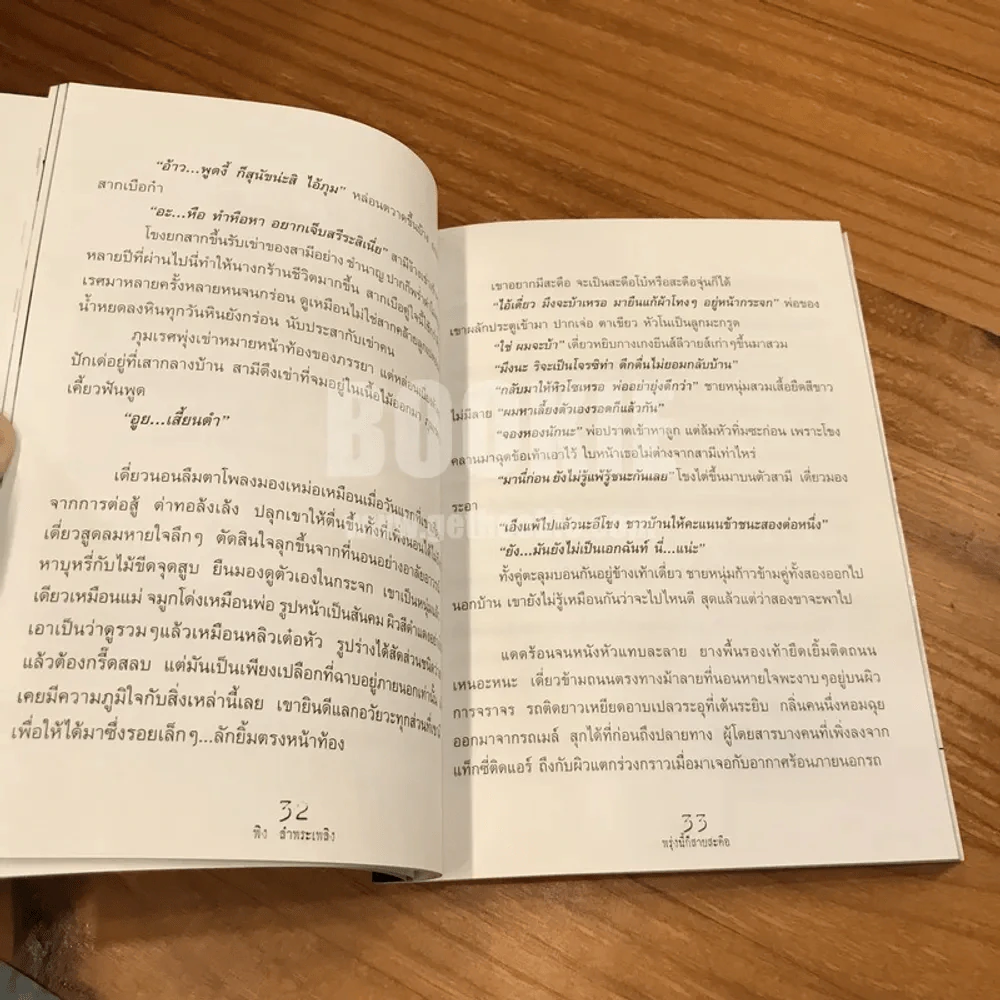 “อ้าว...พูดงี้ ก็สุนัขน่ะสิ ไอ้ภุม” หล่อนตวาดขึ้นบ้าง
สากเบือกำ
“อะ...หือ ทำหือหา อยากเจ็บสรีระสิเนี่ย” สามีง้างเข่า
โขงยกสากขึ้นรับเข่าของสามีอย่าง ชำนาญ ปากก็พร่ำ
หลายปีที่ผ่านไปนี้ทำให้นางกร้านชีวิตมากขึ้น สากเบือคู่ใจนี้
เรศมาหลายครั้งหลายหนจนกร่อน ดูเหมือนไม่ใช่สากคล้าย
น้ำหยดลงหินทุกวันหินยังกร่อน นับประสากับเข่าคน
ภุมเรศพุ่งเข่าหมายหน้าท้องของภรรยา แต่หล่อน
ปักเด่อยู่ที่เสากลางบ้าน สามีดึงเข่าที่จมอยู่ในเนื้อไม้ออกมา
เคี้ยวฟันพูด
“อูย...เสี้ยนตำ”
เดี่ยวนอนลืมตาโพลงมองเหม่อเหมือนเมื่อวันแรกที่
จากการต่อสู้ ด่าทอล้งเล้ง ปลุกเขาให้ตื่นขึ้นทั้งที่เพิ่งนอนได้
เดี่ยวสูดลมหายใจลึกๆ ตัดสินใจลุกขึ้นจากที่นอนอย่างอาลัย
หาบุหรี่กับไม้ขีดจุดสูบ ยืนมองดูตัวเองในกระจก เขาเป็นหนุ่ม
เดียวเหมือนแม่ จมูกโด่งเหมือนพ่อ รูปหน้าเป็นสันคม ผิวสีดำแดง
เอาเป็นว่าดูรวมๆแล้วเหมือนหลิวเต๋อหัว รูปร่างได้สัดส่วนชนิด
แล้วต้องกรี๊ดสลบ แต่มันเป็นเพียงเปลือกที่ฉาบอยู่ภายนอกเท่านั้น
เคยมีความภูมิใจกับสิ่งเหล่านี้เลย เขายินดีแลกอวัยวะทุกส่วนที่
เพื่อให้ได้มาซึ่งรอยเล็กๆ...ลักยิ้มตรงหน้าท้อง
32
พิง ลำพระเพลิง
เขาอยากมีสะดือ จะเป็นสะดือโบ๋หรือสะดือจุ่นก็ได้
“ไอ้เดี่ยว มึงจะบ้าเหรอ มายืนแก้ผ้าโทงๆ อยู่หน้ากระจก” พ่อของ
เขาผลักประตูเข้ามา ปากเจ่อ ตาเขียว หัวโนเป็นลูกมะกรูด
“ใช่ ผมจะบ้า” เดี่ยวหยิบกางเกงยีนส์ลีวายส์เก่าๆขึ้นมาสวม
“มึงนะ ริจะเป็นโจรซิท่า ดึกดื่นไม่ยอมกลับบ้าน”
“กลับมาให้หัวโซเหรอ พ่ออย่ายุ่งดีกว่า” ชายหนุ่มสวมเสื้อยืดสีขาว
ไม่มีลาย “ผมหาเลี้ยงตัวเองรอดก็แล้วกัน”
“จองหองนักนะ” พ่อปราดเข้าหาลูก แต่ล้มหัวทิ่มซะก่อน เพราะโขง
คลานมาฉุดข้อเท้าเอาไว้ ใบหน้าเธอไม่ต่างจากสามีเท่าไหร่
“มานี่ก่อน ยังไม่รู้แพ้รู้ชนะกันเลย” โขงไต่ขึ้นมาบนตัวสามี เดี่ยวมอง
ระอา
“เอ็งแพ้ไปแล้วนะอีโขง ชาวบ้านให้คะแนนข้าชนะสองต่อหนึ่ง”
“ยัง...มันยังไม่เป็นเอกฉันท์ นี่...แน่ะ”
ทั้งคู่ตะลุมบอนกันอยู่ข้างเท้าเดี่ยว ชายหนุ่มก้าวข้ามคู่ทั้งสองออกไป
นอกบ้าน เขายังไม่รู้เหมือนกันว่าจะไปไหนดี สุดแล้วแต่ว่าสองขาจะพาไป
แดดร้อนจนหนังหัวแทบละลาย ยางพื้นรองเท้ายืดเยิ้มติดถนน
เหนอะหนะ เดี่ยวข้ามถนนตรงทางม้าลายที่นอนหายใจพะงาบๆอยู่บนผิว
การจราจร รถติดยาวเหยียดอาบเปลวระอุที่เต้นระยิบ กลิ่นคนนึ่งหอมฉุย
ออกมาจากรถเมล์ สุกได้ที่ก่อนถึงปลายทาง ผู้โดยสารบางคนที่เพิ่งลงจาก
แท็กซี่ติดแอร์ ถึงกับผิวแตกร่วงกราวเมื่อมาเจอกับอากาศร้อนภายนอกรถ
33
พรุ่งนี้ก็สายสะดือ